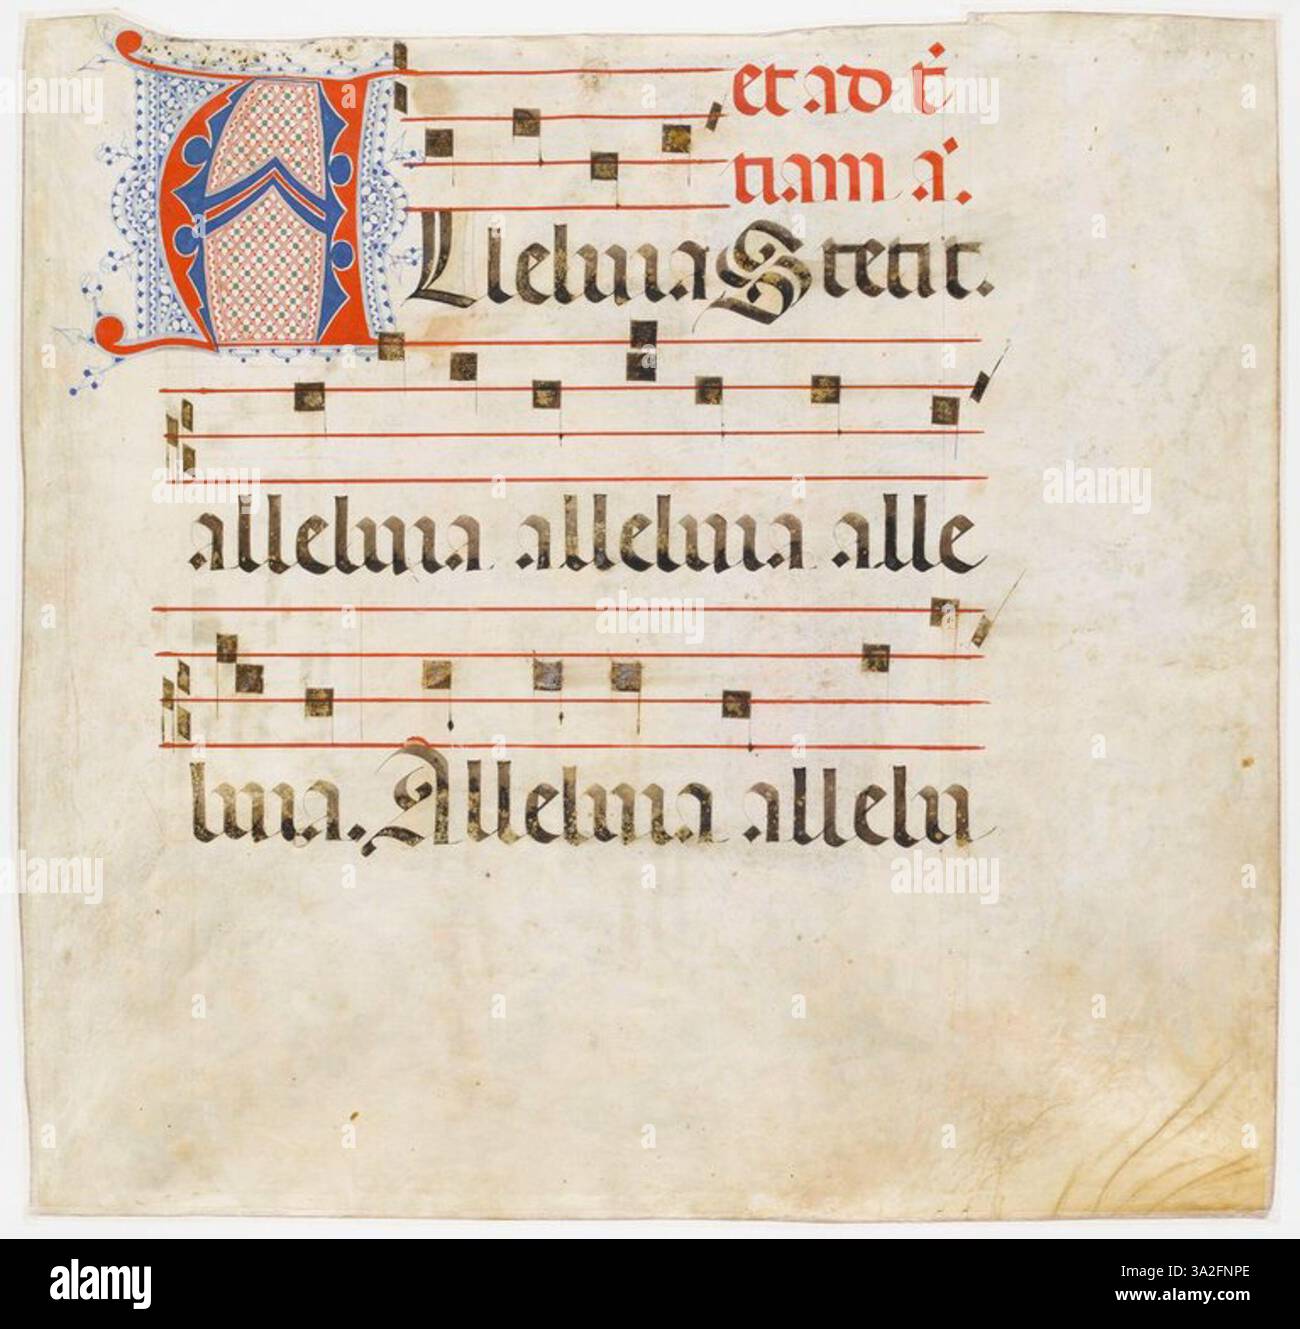 et ad t̄
tiam a'.
Alleluia Stetit.
alleluia alleluia alle
luia. Alleluia allelu
alamy
Image ID: 3A2FNPE
www.alamy.com